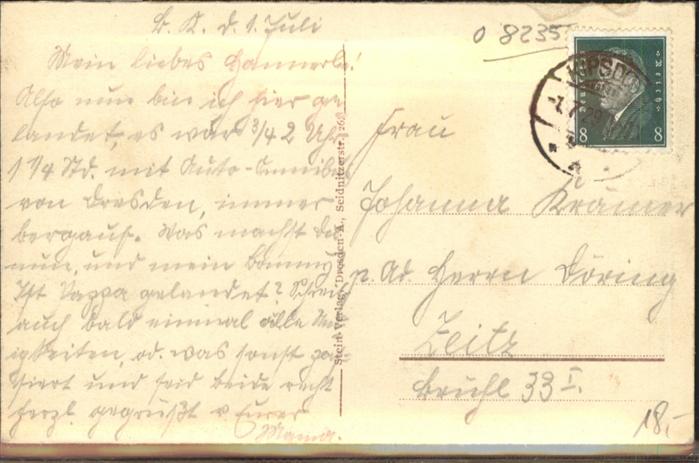 B. K. d. 1. Juli
Mein liebes Hannerle!
Also nun bin ich hier ge-
landet, es war 3/4 2 Uhr
1 1/4 Std. mit Auto-Omnibus
von Dresden, immer
bergauf. Was machst du
nun, und mein
Ist Pappa gelandet? Schreib
auch bald einmal alle
igkeiten, od. was sonst pas-
siert und seid beide recht
herzl. gegrüßt v. Eurer
Mama.
Stein-Verlag, Dresden-A., Seidnitzerstr.
o 8235
KIPSDO
8 8
Frau
Johanna Krämer
p. Ad. Herrn Döring
Zeitz
Brühl 33 I.
18.-